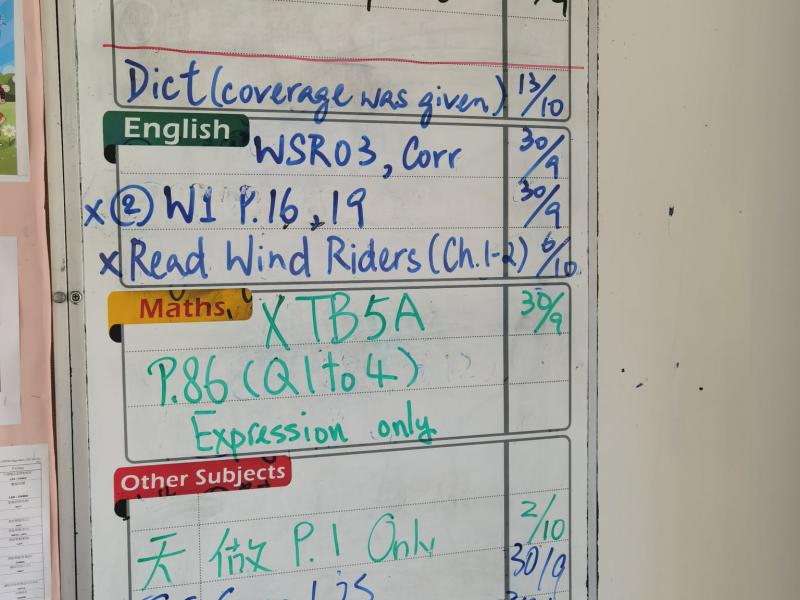 Dict (coverage was given) 13/10
English
WSR03, Corr 30/9
x ② W1 P.16, 19 30/9
x Read Wind Riders (Ch.1-2) 6/10
Maths
X TB5A 30/9
P.86 (Q1 to 4)
Expression only
Other Subjects
天 做 P.1 Only 2/10
30/9